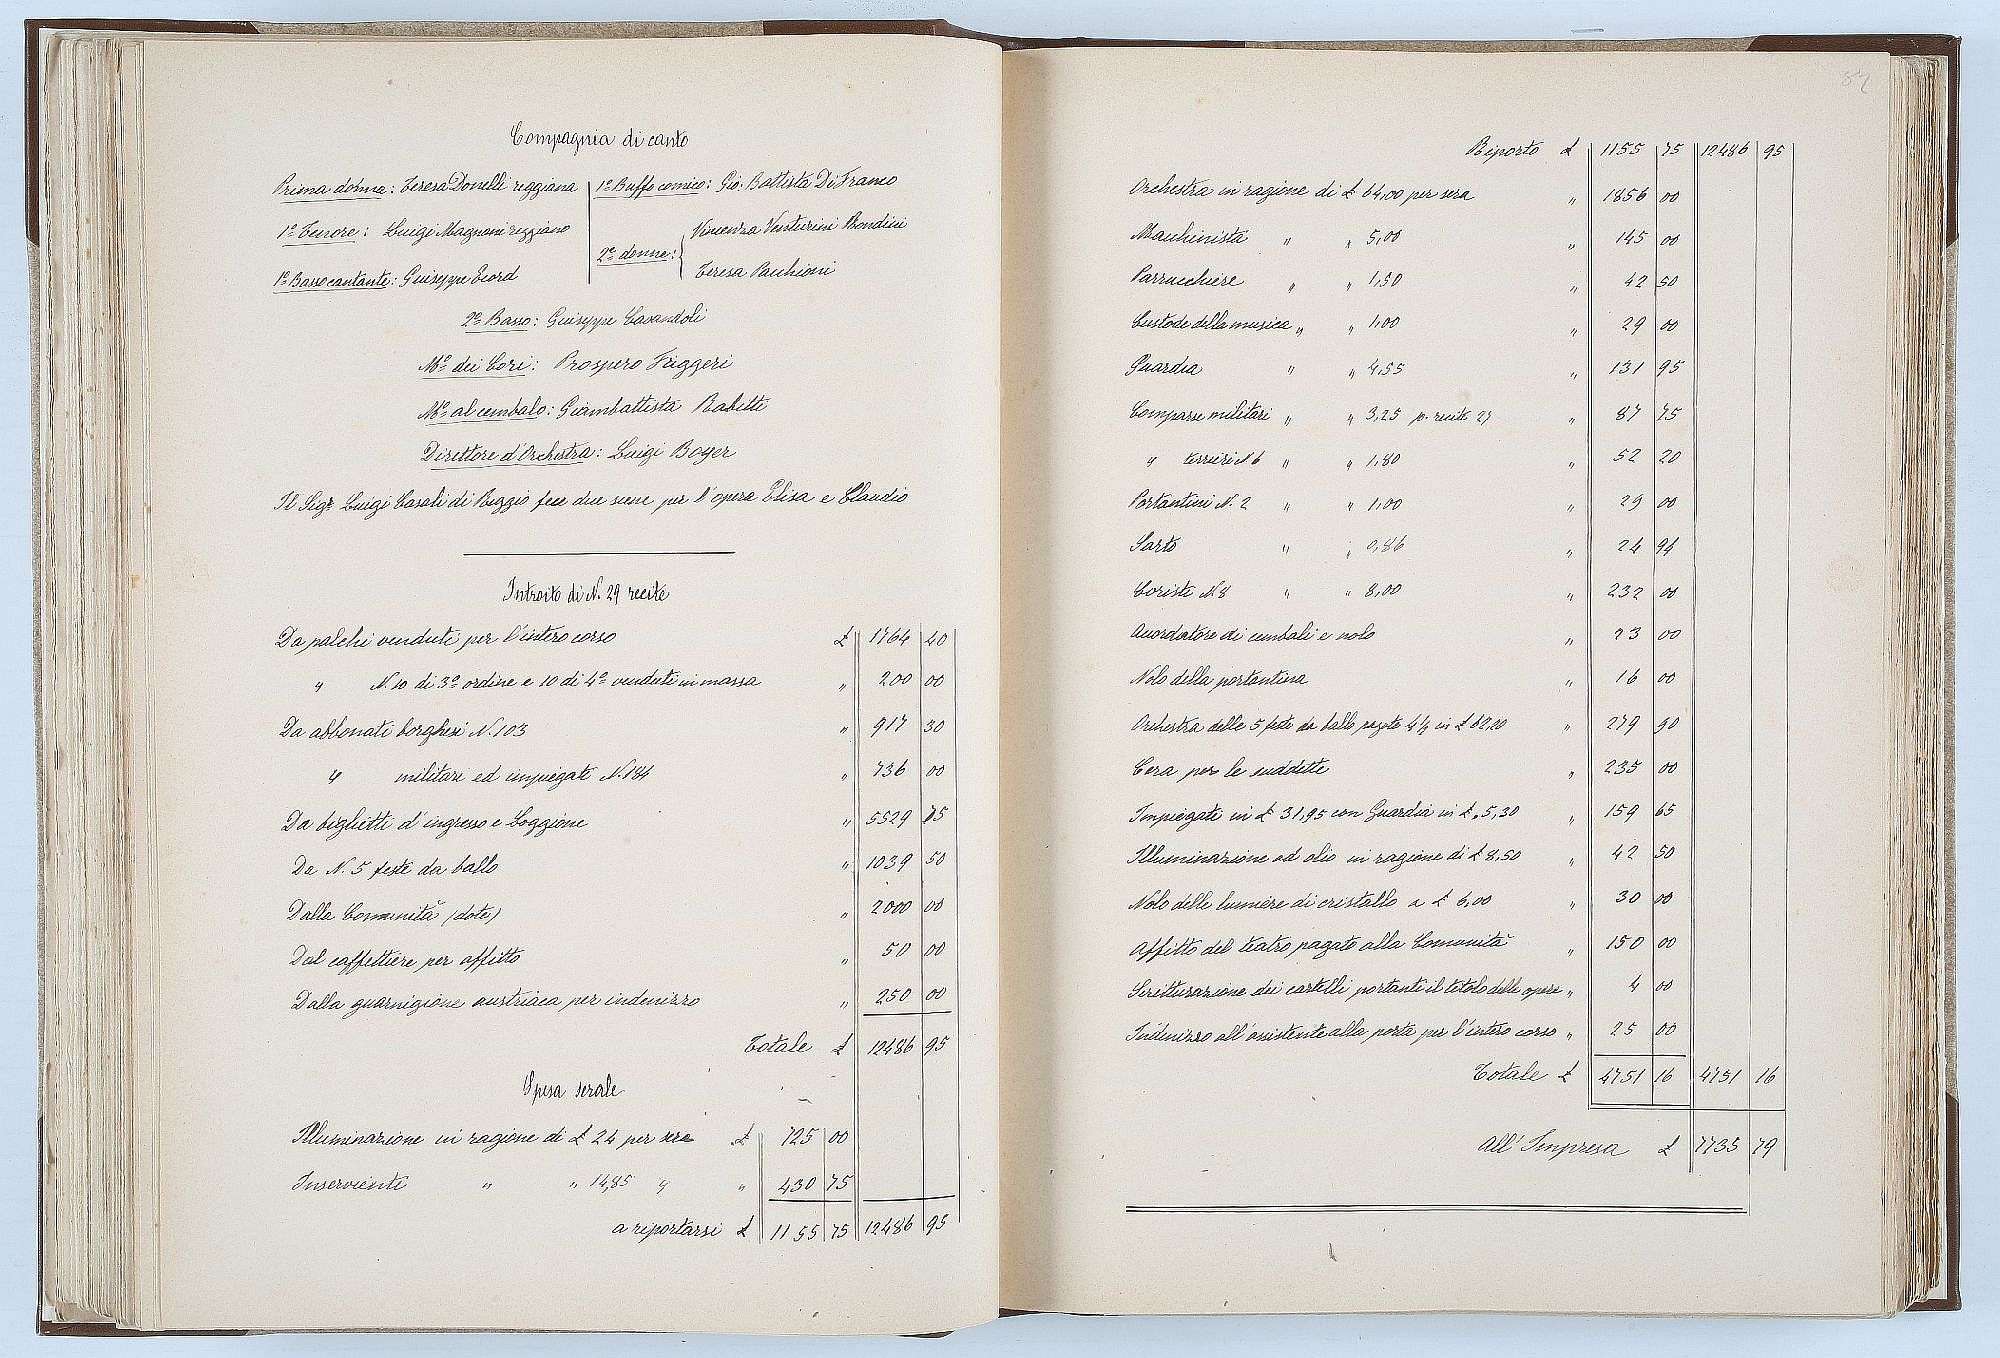 Compagnia di canto
Prima donna: Teresa Donelli reggiana
1º Tenore: Luigi Magnani reggiano
1º Basso cantante: Giuseppe
1º Buffo comico: Gio. Battista Di Franco
2e donne: Vincenza Venturini Bondini
Teresa Pacchioni
2º Basso: Giuseppe Cavandoli
Mº dei Cori: Prospero Friggeri
Mº al cembalo: Giambattista Rabitti
Direttore d'Orchestra: Luigi Boyer
Il Sigr Luigi Casali di Reggio fece due scene per l'opera Elisa e Claudio
Introito di N. 29 recite
Da palchi venduti per l'intero corso £ 1764 40
" N. 10 di 3º ordine e 10 di 4º venduti in massa " 200 00
Da abbonati borghesi N. 103 " 917 30
" militari ed impiegati N. 184 " 736 00
Da biglietti d'ingresso e Loggione " 5529 75
Da N. 5 feste da ballo " 1039 50
Dalla Comunità (dote) " 2000 00
Dal caffettiere per affitto " 50 00
Dalla guarnigione austriaca per indenizzo " 250 00
Totale £ 12486 95
Spesa serale
Illuminazione in ragione di £ 24 per sera £ 725 00
Inservienti " " 14,85 " " 430 75
a riportarsi £ 1155 75 12486 95
Riporto £ 1155 75 12486 95
Orchestra in ragione di £ 64,00 per sera " 1856 00
Macchinista " " 5,00 " 145 00
Parrucchiere " " 1,50 " 42 50
Custode della musica " " 1,00 " 29 00
Guardia " " 4,55 " 131 95
Comparse militari " " 3,25 p. recite 27 " 87 75
" N 6 " " 1,80 " 52 20
Portantini N. 2 " " 1,00 " 29 00
Sarto " " 0,86 " 24 94
Coristi N. 8 " " 8,00 " 232 00
Accordatore di cembali e nolo " 23 00
Nolo della portantina " 16 00
Orchestra delle 5 feste da ballo pagate 4½ in £ 62,20 " 279 90
Cera per le suddette " 235 00
Impiegati in £ 31,95 con Guardia in £. 5,30 " 159 65
Illuminazione ad olio in ragione di £ 8,50 " 42 50
Nolo delle lumiere di cristallo a £ 6,00 " 30 00
Affitto del teatro pagato alla Comunità " 150 00
Scritturazione dei cartelli portanti il titolo delle opere " 4 00
Indenizzo all'assistente alla porta per l'intero corso " 25 00
Totale £ 4751 16 4751 16
All'Impresa £ 7735 79